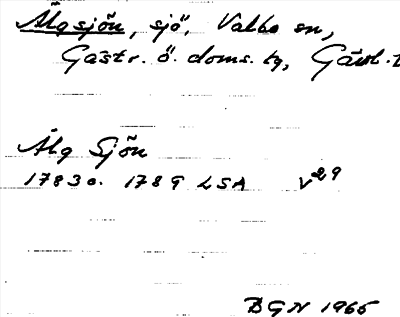 Älgsjön, sjö. Valbo sn,
Gästr. ö. doms. tg, Gävl.
Älg Sjön
1783 o. 1789 LSA V29
BGN 1965